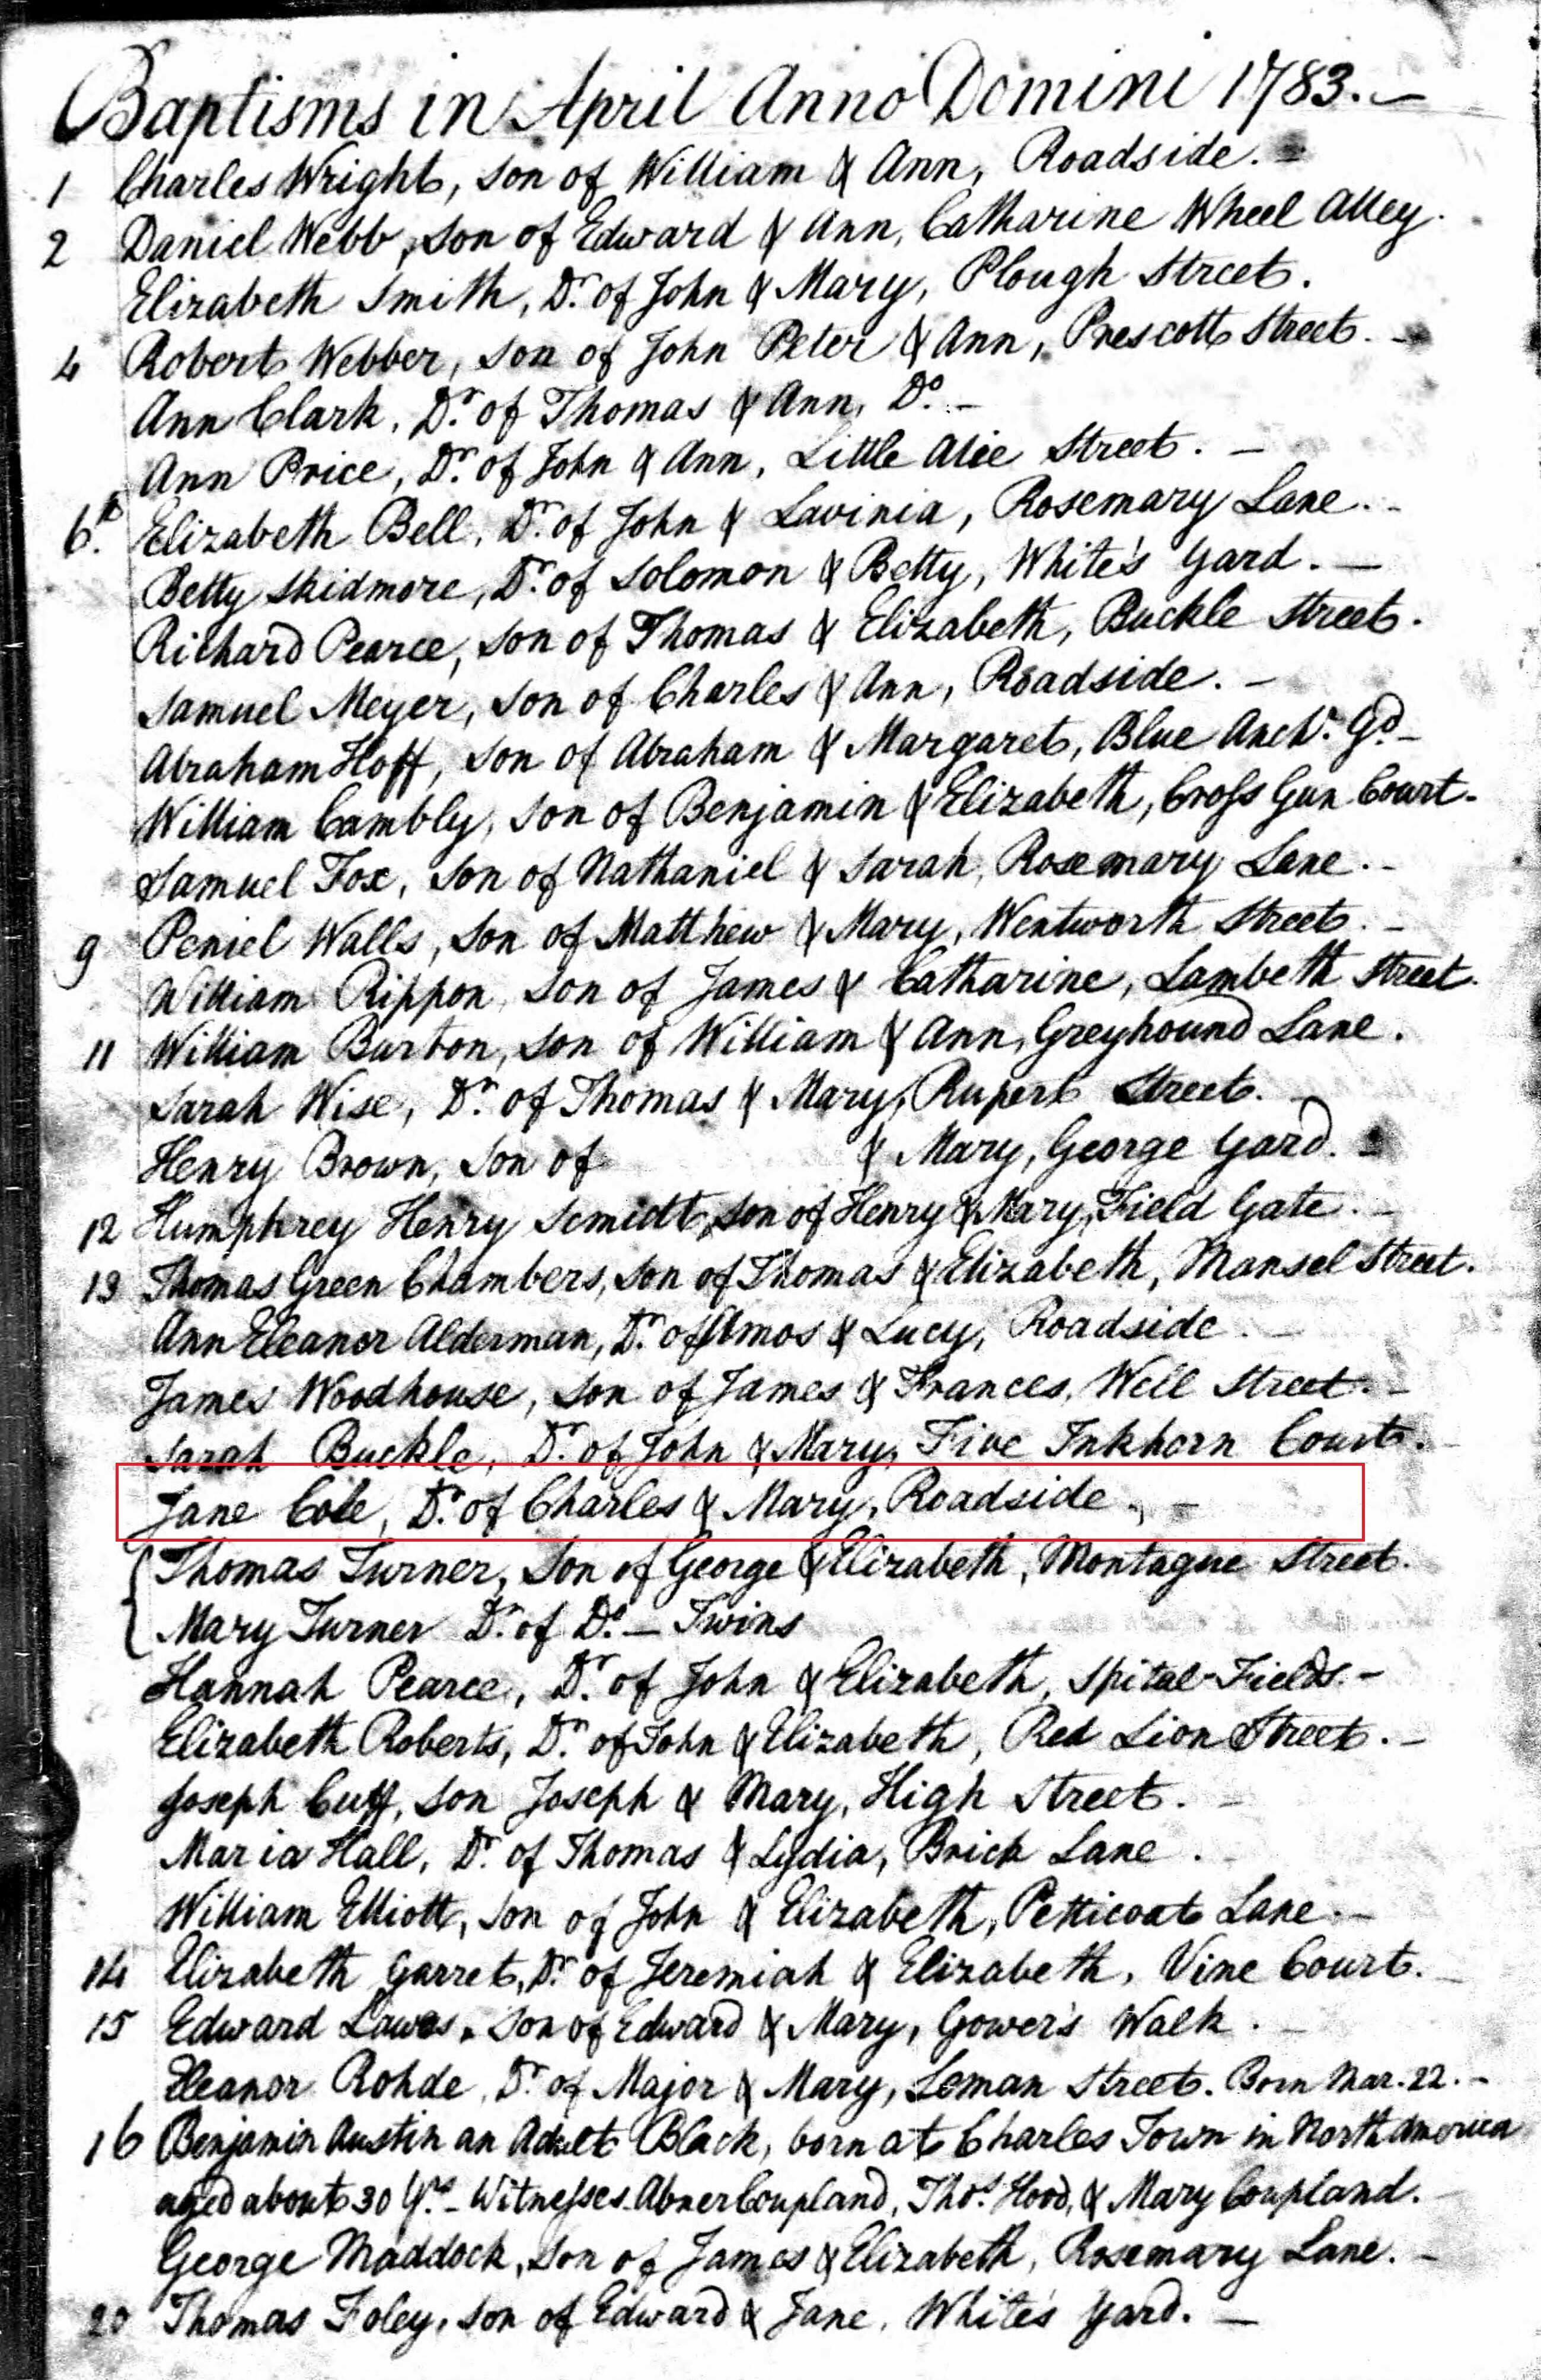 Baptisms in April Anno Domini 1783.—
1 Charles Wright, Son of William & Ann, Roadside. —
2 Daniel Webb, Son of Edward & Ann, Catharine Wheel Alley.
Elizabeth Smith, Dr. of John & Mary, Plough Street.
4 Robert Webber, Son of John Peter & Ann, Prescott Street. —
Ann Clark, Dr. of Thomas & Ann, Do. —
Ann Price, Dr. of John & Ann, Little Alie Street. —
6. Elizabeth Bell, Dr. of John & Lavinia, Rosemary Lane. -
Betty Skidmore, Dr. of Solomon & Betty, White's Yard. —
Richard Pearce, Son of Thomas & Elizabeth, Buckle Street.
Samuel Meyer, Son of Charles & Ann, Roadside. —
Abraham Hoff, Son of Abraham & Margaret, Blue Anchr. Yd. —
William Cambly, Son of Benjamin & Elizabeth, Cross Gun Court.
Samuel Fox, Son of Nathaniel & Sarah, Rosemary Lane. -
9 Peniel Walls, Son of Matthew & Mary, Wentworth Street. -
William Rippon, Son of James & Catharine, Lambeth Street.
11 William Burton, Son of William & Ann, Greyhound Lane.
Sarah Wise, Dr. of Thomas & Mary, Rupert Street. —
Henry Brown, Son of & Mary, George Yard. —
12 Humphrey Henry Scmidtt, Son of Henry & Mary, Field Gate. —
13 Thomas Green Chambers, Son of Thomas & Elizabeth, Mansel Street.
Ann Eleanor Alderman, Dr. of Amos & Lucy, Roadside. —
James Woodhouse, Son of James & Frances, Well Street. —
Sarah Buckle, Dr. of John & Mary, Five Inkhorn Court.
Jane Cole, Dr. of Charles & Mary, Roadside. —
Thomas Turner, Son of George & Elizabeth, Montague Street.
Mary Turner Dr. of Do. — Twins
Hannah Pearce, Dr. of John & Elizabeth, Spital-Fields. —
Elizabeth Roberts, Dr. of John & Elizabeth, Red Lion Street. —
Joseph Cuff, Son Joseph & Mary, High Street. —
Maria Hall, Dr. of Thomas & Lydia, Brick Lane.
William Elliott, Son of John & Elizabeth, Petticoat Lane. —
14 Elizabeth Garret, Dr. of Jeremiah & Elizabeth, Vine Court. —
15 Edward Lawes, Son of Edward & Mary, Gower's Walk. —
Eleanor Rohde, Dr. of Major & Mary, Leman Street. Born Mar. 22. -
16 Benjamin Austin an Adult Black, born at Charles Town in North America
aged about 30 Yrs. — Witnesses Abner Coupland, Thos. Hood, & Mary Coupland.
George Maddock, Son of James & Elizabeth, Rosemary Lane. —
20 Thomas Foley, Son of Edward & Jane, White's Yard. —